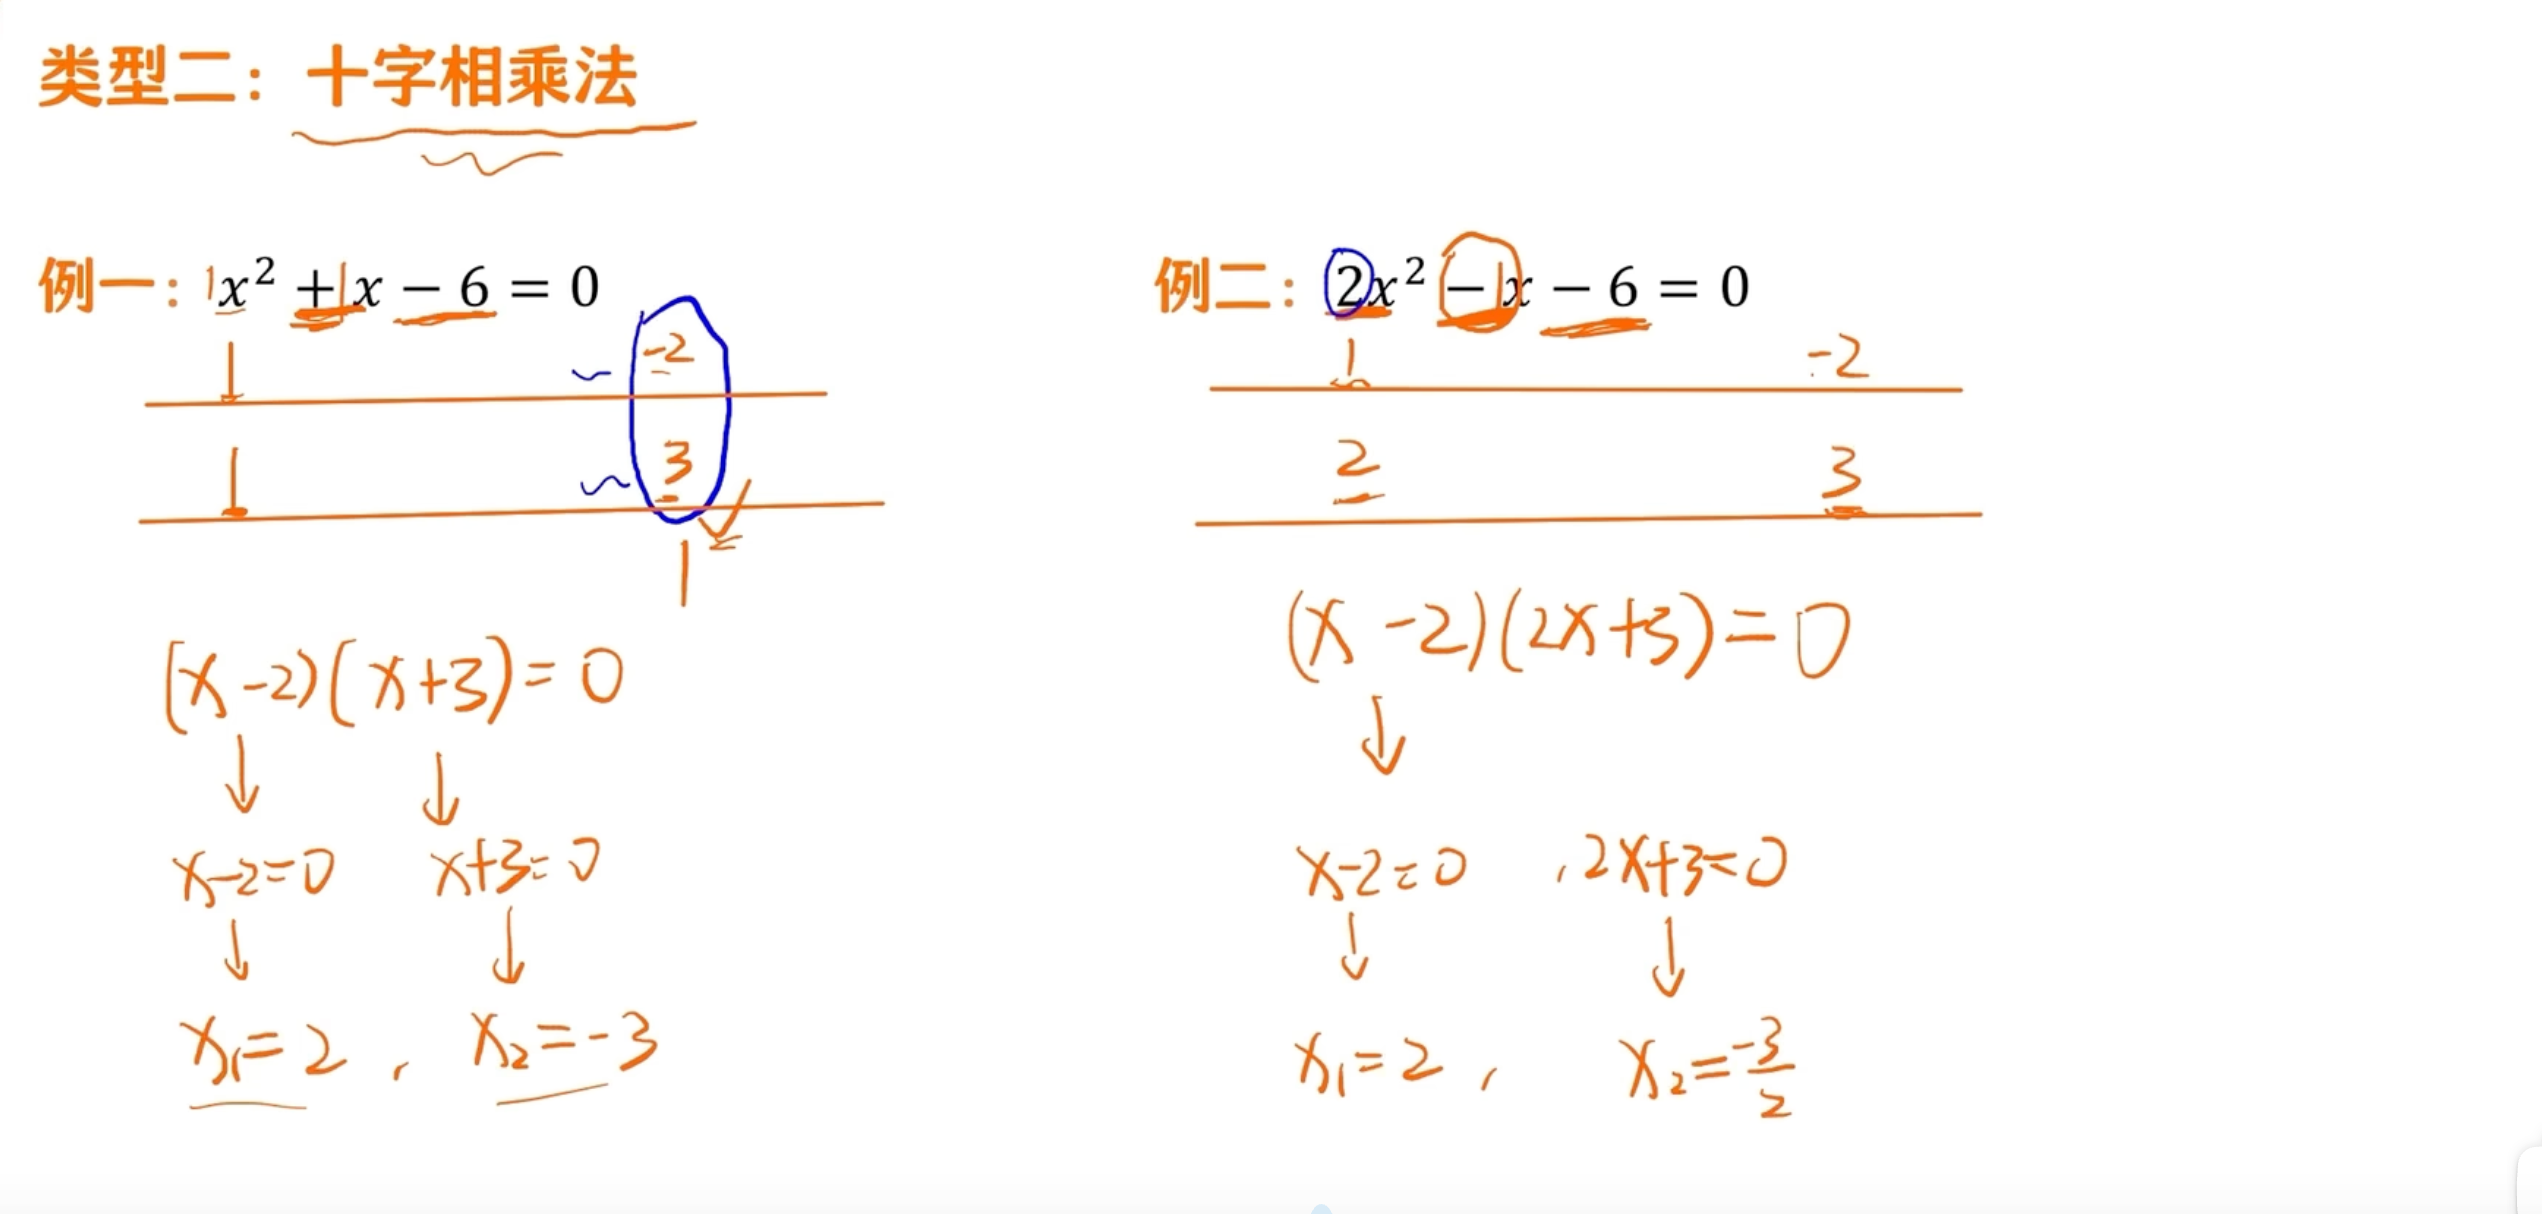 类型二：十字相乘法
例一：1x² +1x − 6 = 0
1 -2
1 3
1
(x-2)(x+3)=0
x-2=0 x+3=0
x₁=2， x₂=-3
例二：2x² −1x − 6 = 0
1 -2
2 3
(x-2)(2x+3)=0
x-2=0 ，2x+3=0
x₁=2， x₂=-3/2